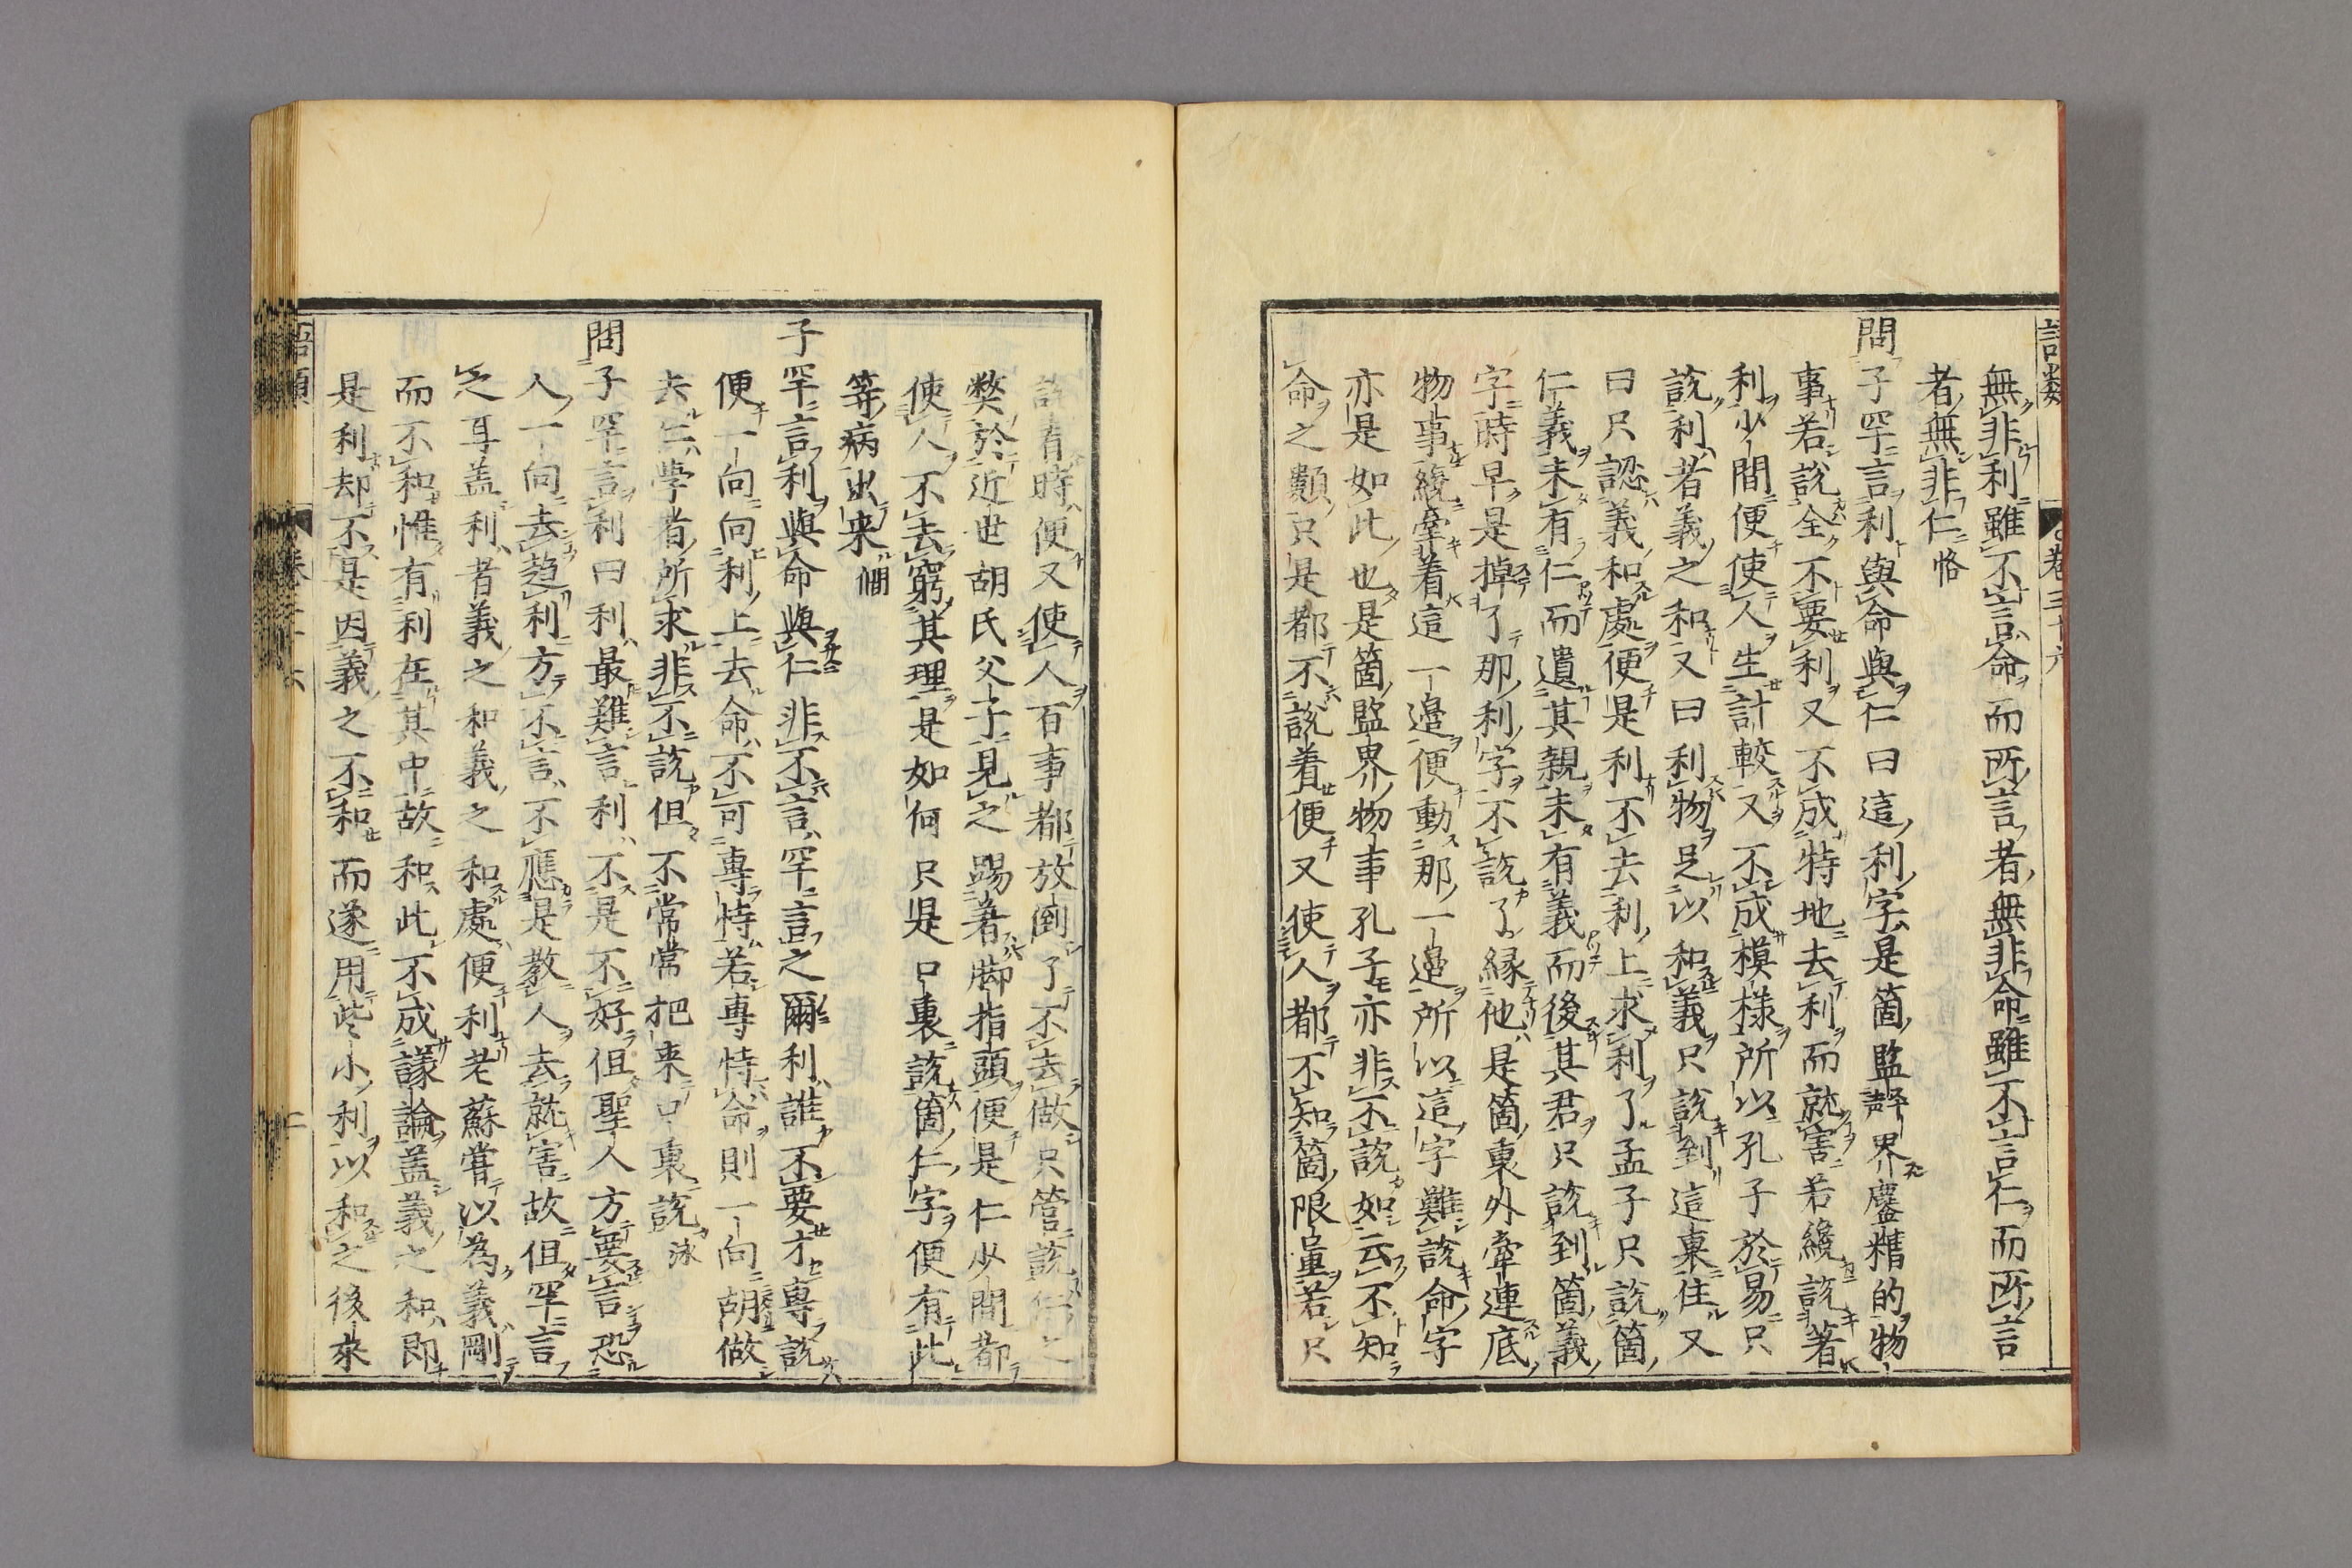 語類 卷三十六
無非利雖不言命而所言者無非命雖不言仁而所言
者無非仁 恪
問子罕言利與命與仁曰這利字是箇監界鏖糟的物
事若說全不要利又不成特地去利而就害若纔說著
利少間便使人生計較又不成模樣所以孔子於易只
說利者義之和又曰利物足以和義只說到這裏住又
曰只認義和處便是利不去利上求利了孟子只說箇
仁義未有仁而遺其親未有義而後其君只說到箇義
字時早是掉了那利字不說了緣他是箇裏外牽連底
物事纔牽着這一邊便動那一邊所以這字難說命字
亦是如此也是箇監界物事孔子亦非不說如云不知
命之類只是都不說着便又使人都不知箇限量若只
說着時便又使人百事都放倒了不去做只管說仁之
弊於近世胡氏父子見之踢著脚指頭便是仁少間都
使人不去窮其理是如何只是口裏說箇仁字便有此
等病出來 僩
子罕言利與命與仁非不言罕言之爾利誰不要才專說
便一向向利上去命不可專恃若專恃命則一向胡做
去仁學者所求非不說但不常常把來口裏說 泳
問子罕言利曰利最難言利不是不好但聖人方要言恐
人一向去趨利方不言不應是教人去就害故但罕言
之耳蓋利者義之和義之和處便利老蘇嘗以為義剛
而不和惟有利在其中故和此不成議論蓋義之和即
是利却不是因義之不和而遂用些小利以和之後來
語類 卷三十六 二